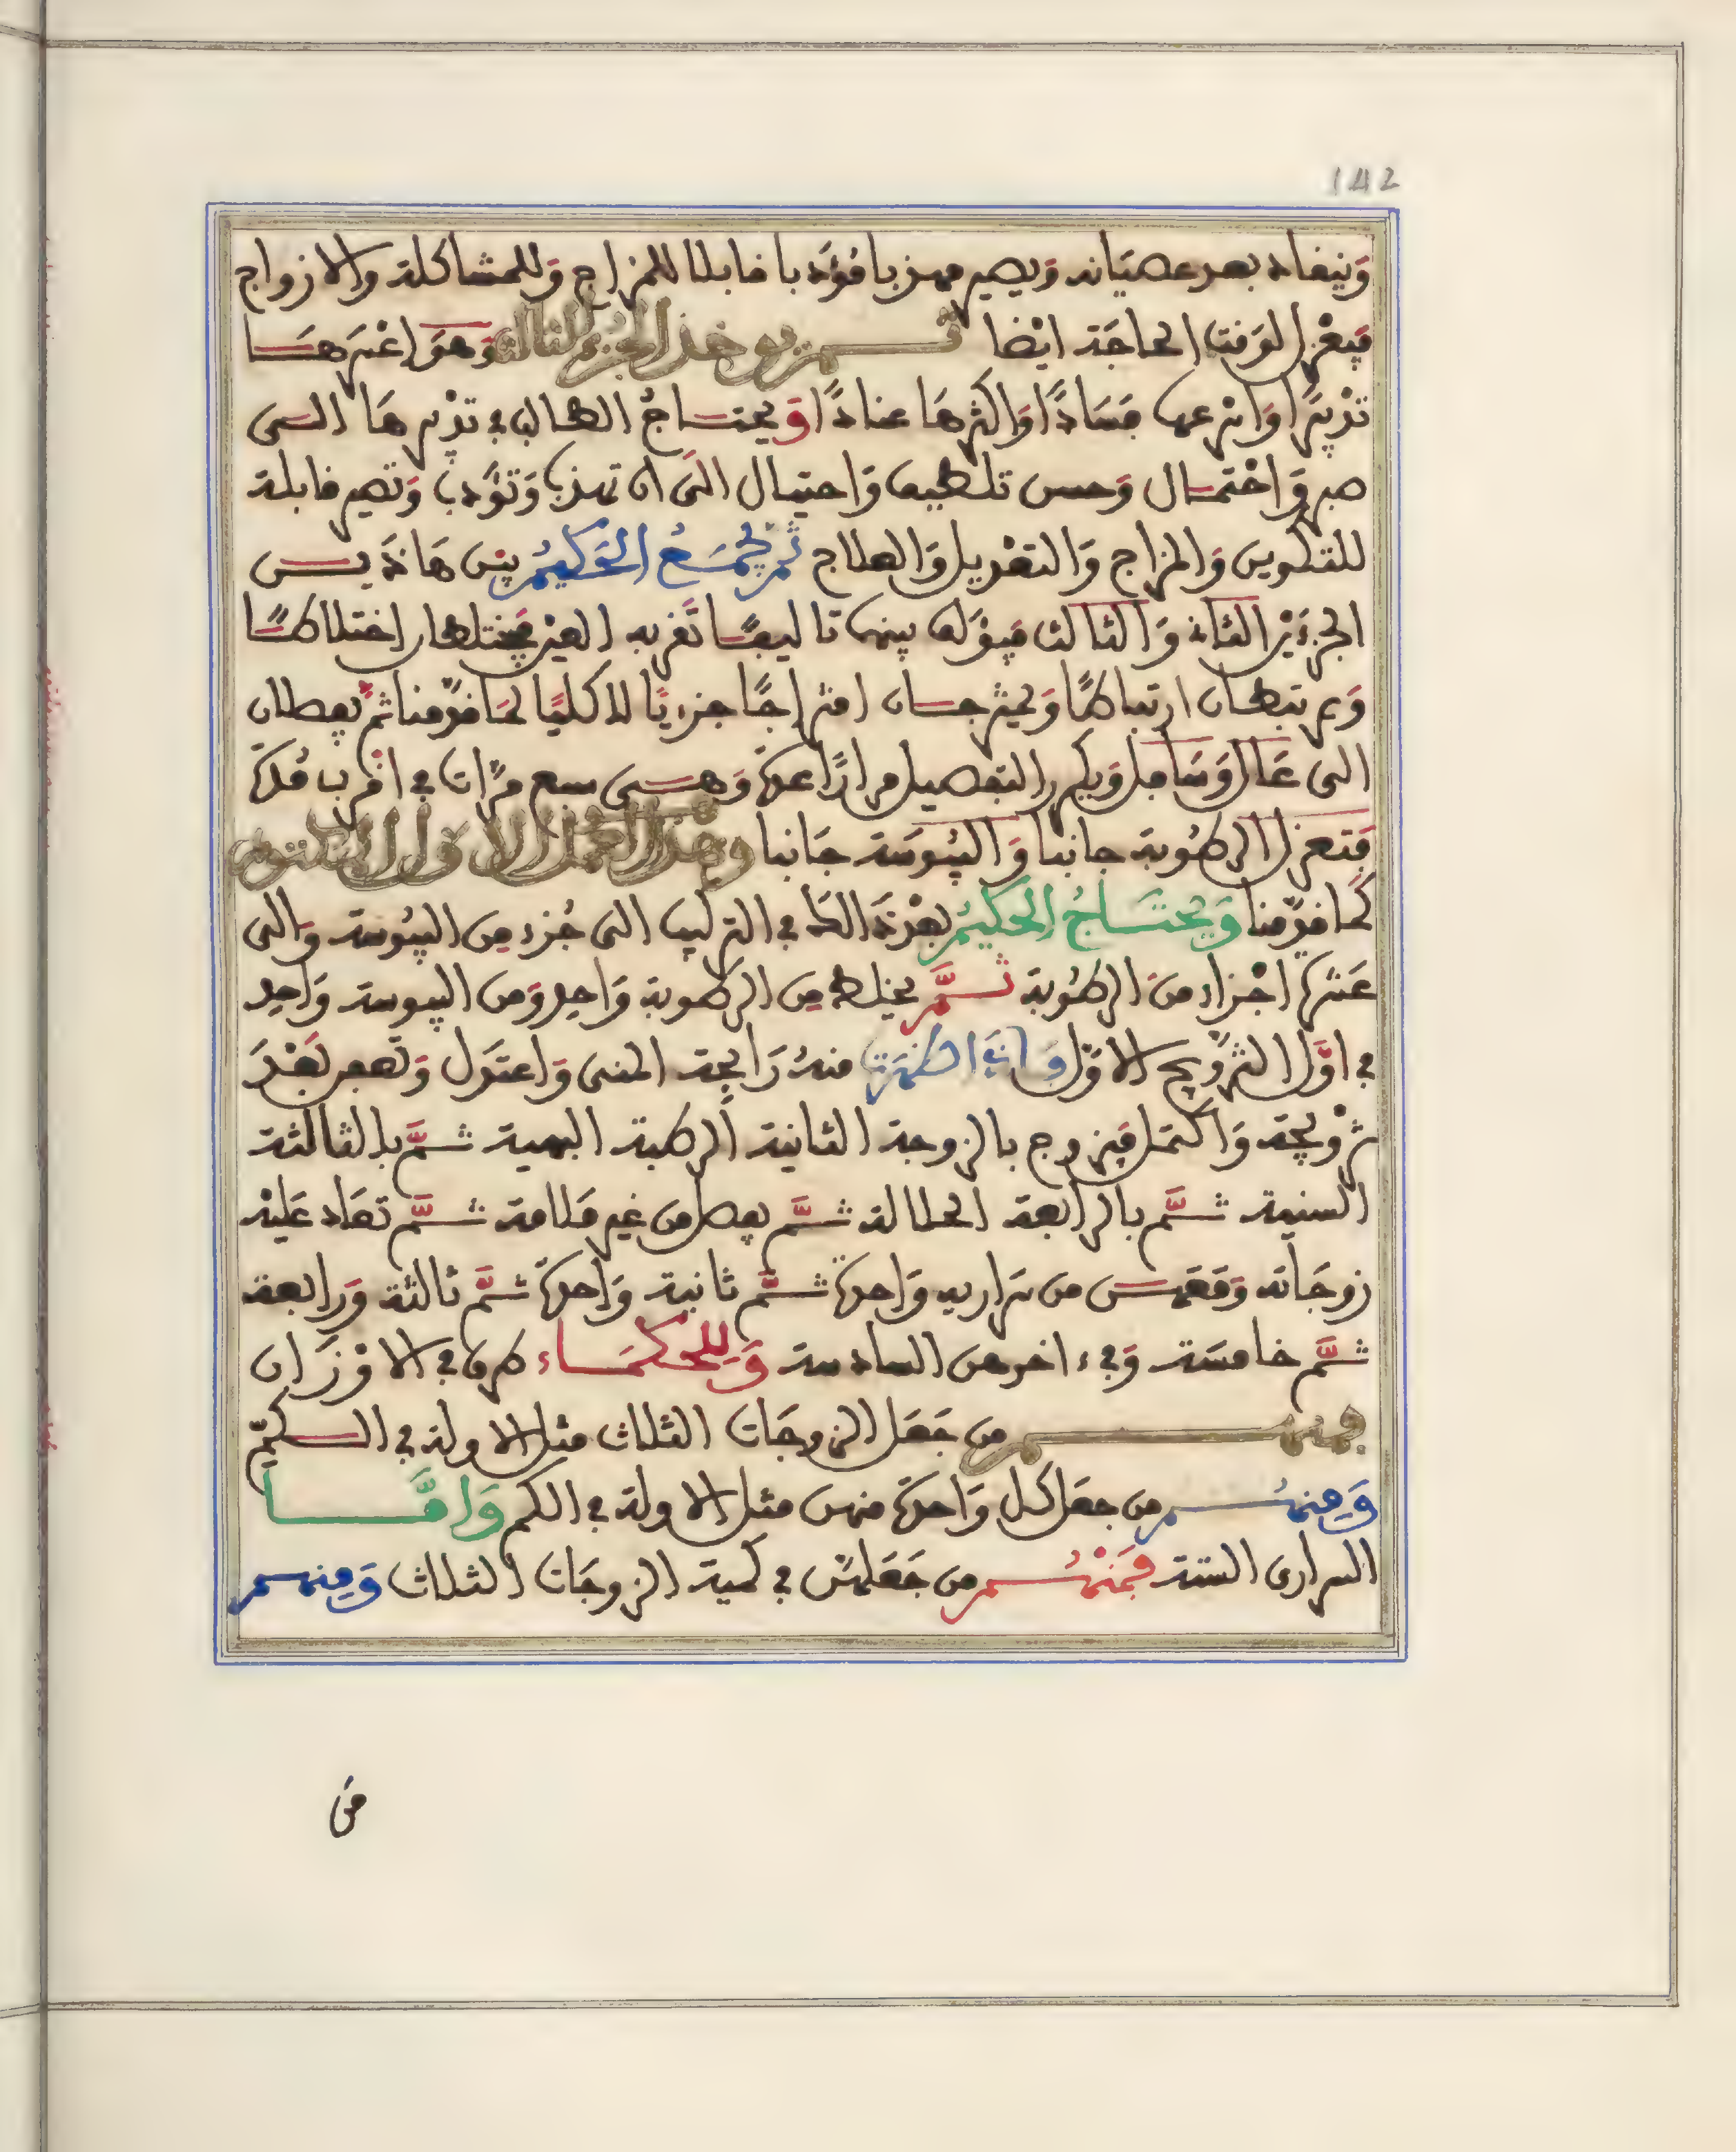 142
وينفاد بعد عصيانه ويصير مهذبا مؤدبا قابلا للمزاج وللمشاكلة والازواج
فيعزل لوقت الحاجة ايضا ثم يوخذ الجزء الثالث وهو اعسرها
تدبيرا واسرعها فسادا واكثرها عنادا ويحتاج الطالب في تدبيرها الى
صبر واحتمال وحسن تلطيف واحتيال الى ان تهذب وتؤدب وتصير قابلة
للتكوين والمزاج والتعديل والعلاج ثم يجمع الحكيم بين هاذين
الجزءين الثاني والثالث فيؤلف بينهما تاليفا تقر به العين فيختلطان اختلاطا
ويرتبطان ارتباطا ويمتزجان امتزاجا جزءيا لا كليا لما قدمنا ثم يفصلان
الى عال وسافل ويكرر التفصيل مرارا عدة وهي سبع مرات في اقرب مدة
فتعزل الرطوبة جانبا واليبوسة جانبا وهذا العمل الاول المكتوم
كما قدمنا ويحتاج الحكيم بعد ذالك في التركيب الى جزء من اليبوسة والى
عشرة اجزاء من الرطوبة ثم يخلط من الرطوبة واحد ومن اليبوسة واحد
في اول التزويج الاول فاذا ظهرت منه رايحة المنى واعتدل وتعفن بعد
تزويجه واكتمل فيزوج بالزوجة الثانية الرطبة البهية ثم بالثالثة
السنية ثم بالرابعة الحلالة ثم يفصل من غير ملامة ثم تعاد عليه
زوجاته وقعمس من سراريه واحدة ثم ثانية واحدة ثم ثالثة ورابعة
ثم خامسة وفي ءاخرهن السادسة وللحكماء طرق في الاوزان
فمنهم من جعل الزوجات الثلاث مثل الاولة في الكم
ومنهم من جعل كل واحدة منهن مثل الاولة في الكم واما
السراري الستة فمنهم من جعلهن في كمية الزوجات الثلاث ومنهم
من